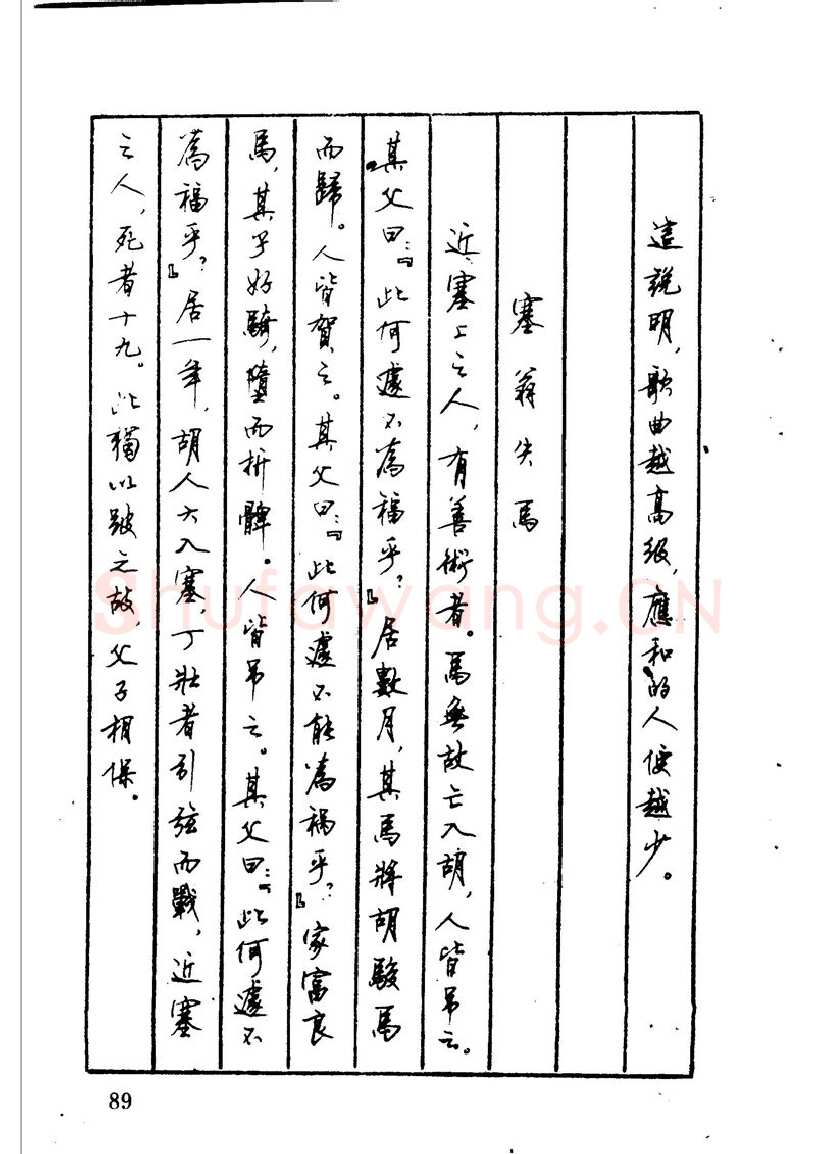 這説明，歌曲越高級，應和的人便越少。
塞翁失馬
近塞上之人，有善術者。馬無故亡入胡，人皆吊之。
其父曰：『此何遽不為福乎？』居數月，其馬將胡駿馬
而歸。人皆賀之。其父曰：『此何遽不能為禍乎？』家富良
馬，其子好騎，墮而折髀。人皆吊之。其父曰：『此何遽不
為福乎？』居一年，胡人大入塞，丁壯者引弦而戰，近塞
之人，死者十九。此獨以跛之故，父子相保。
89
Shufawang.CN